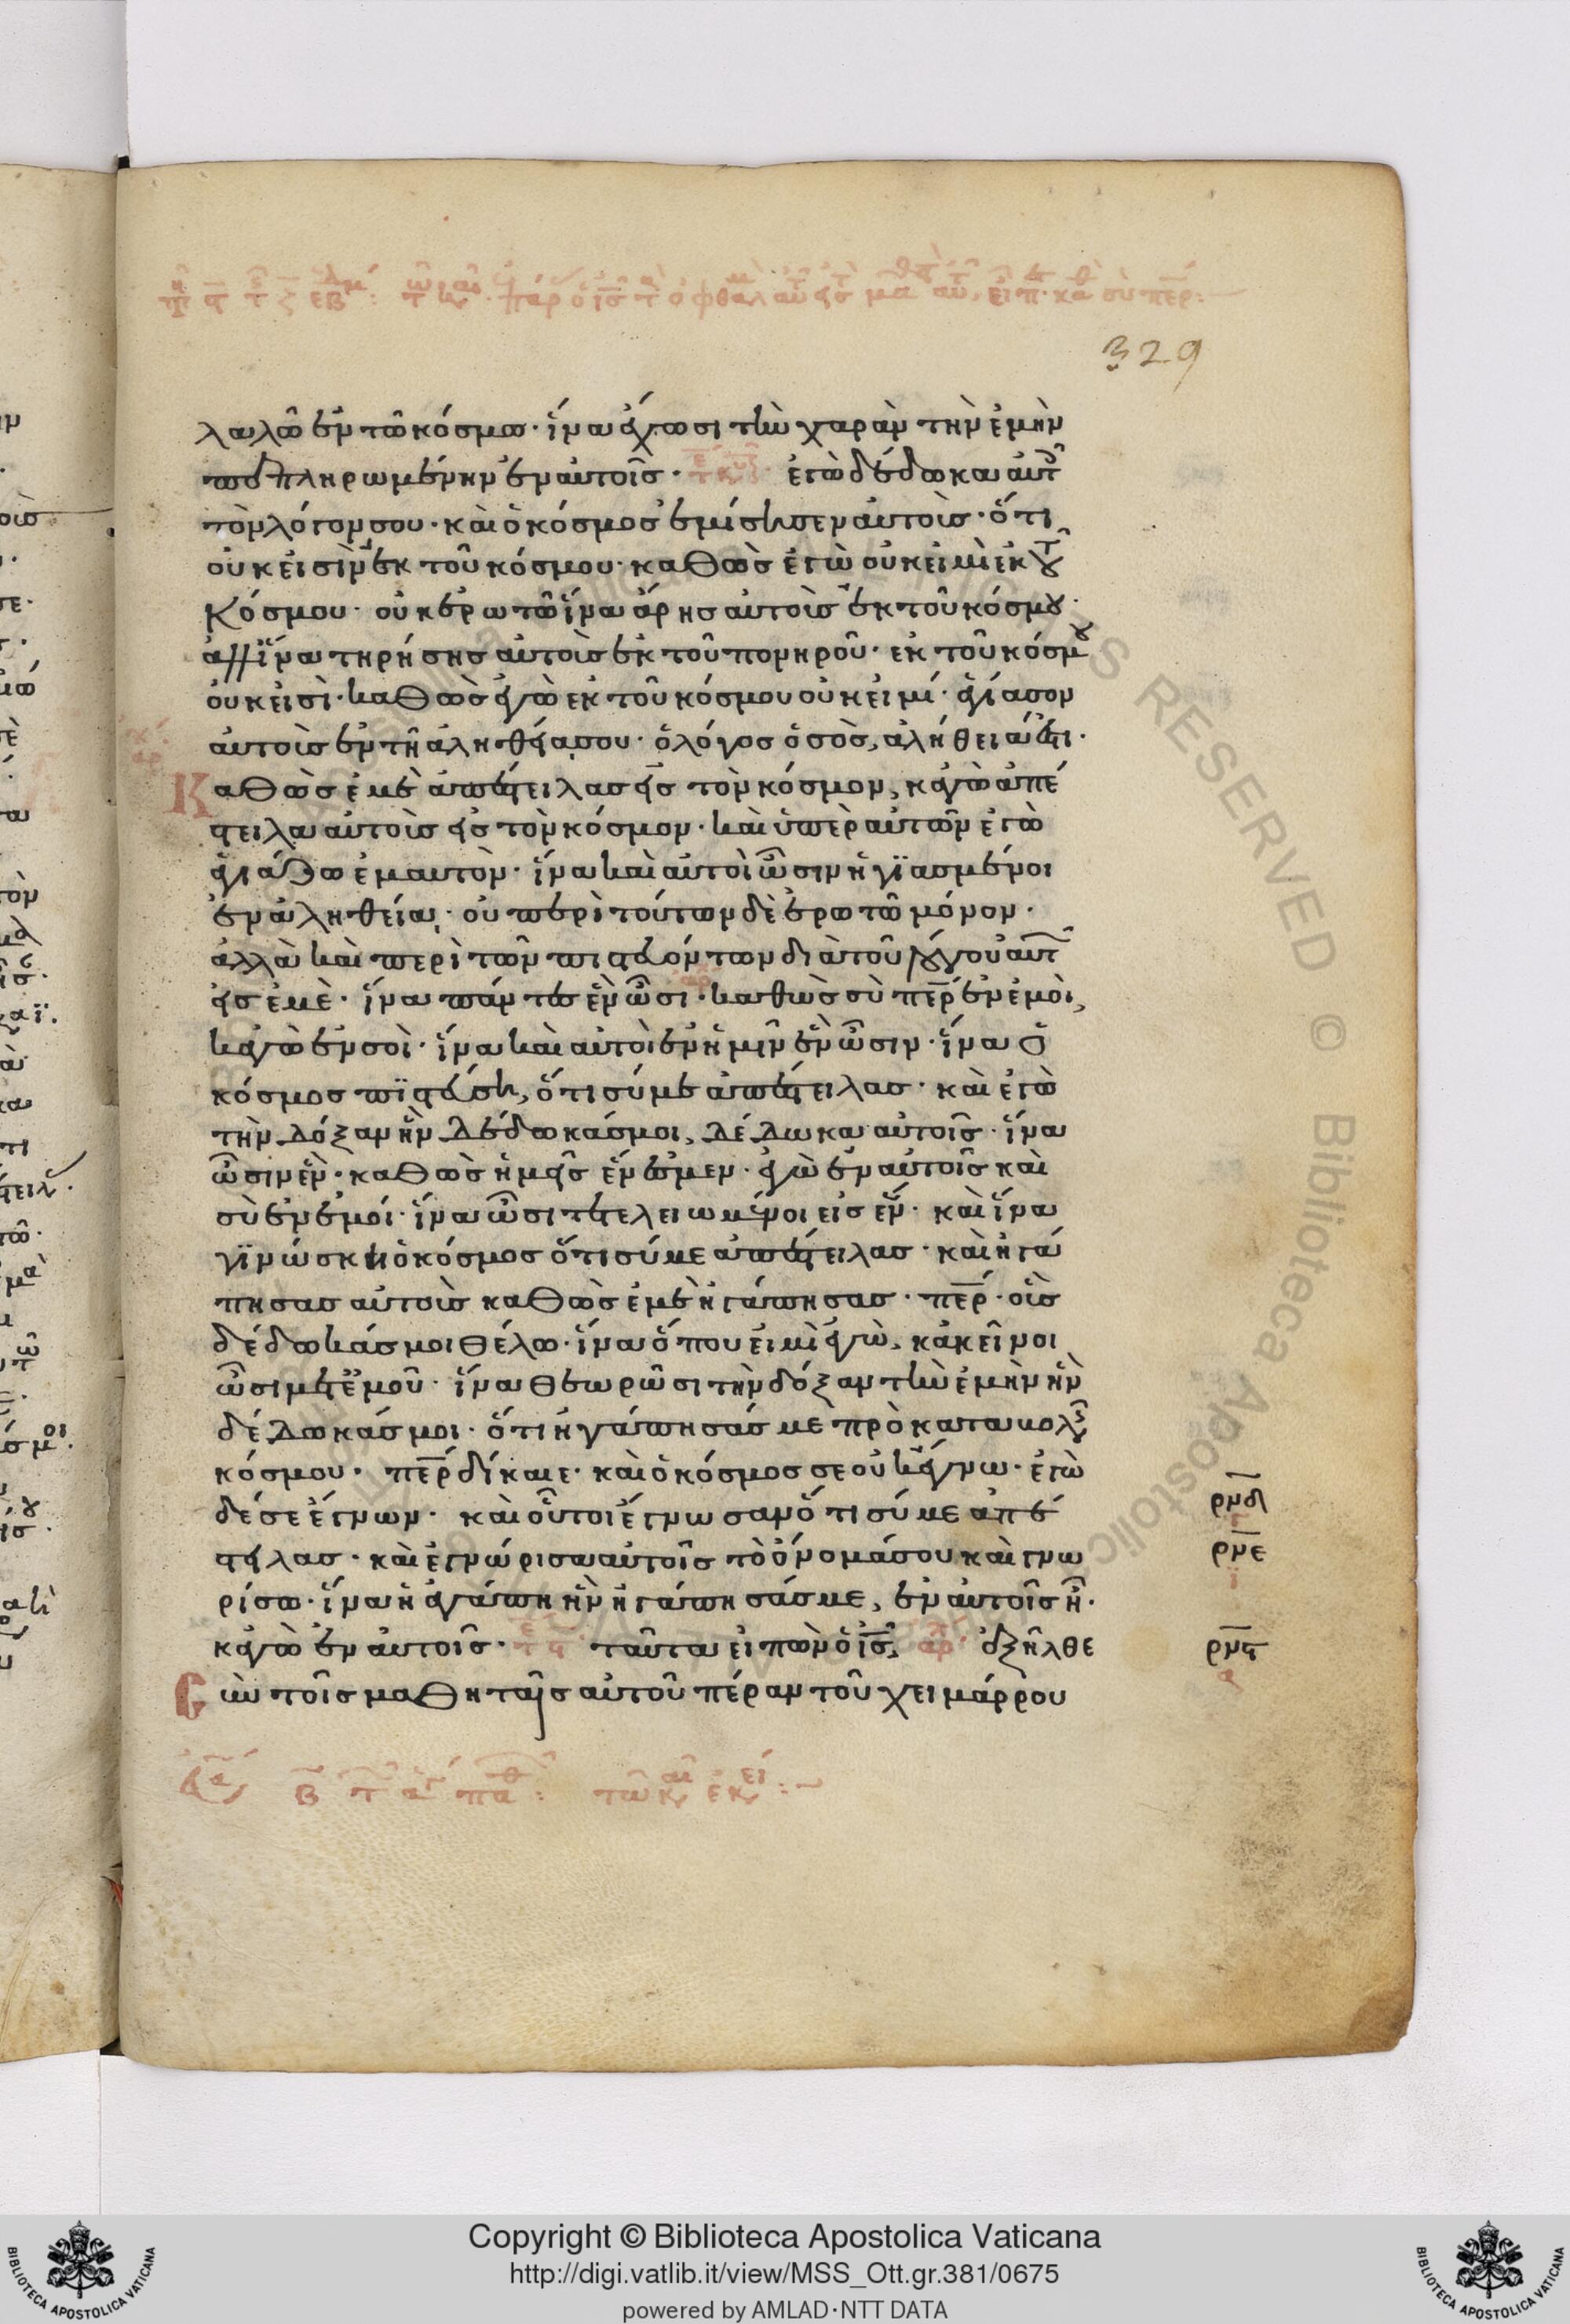 329
λαλῶ ἐν τῶ κόσμω· ἵνα ἔχωσι τὴν χαρὰν τὴν ἐμὴν
πεπληρωμένην ἐν αὐτοῖς· ἐγὼ δέδωκα αὐτ
τὸν λόγον σου· καὶ ὁ κόσμος ἐμίσησεν αὐτοὺς· ὅτι
οὐκ εἰσὶν ἐκ τοῦ κόσμου· καθὼς ἐγὼ οὐκ εἰμὶ ἐκ τ
κόσμου· οὐκ ἐρωτῶ ἵνα ἄρης αὐτοὺς ἐκ τοῦ κόσμου·
ἀλλ ἵνα τηρήσης αὐτοὺς ἐκ τοῦ πονηροῦ· ἐκ τοῦ κόσμου
οὐκ εἰσὶ· καθὼς ἐγὼ ἐκ τοῦ κόσμου οὐκ εἰμί· ἁγίασον
αὐτοὺς ἐν τῆ ἀληθεία σου· ὁ λόγος ὁ σὸς, ἀλήθεια ἐστι·
Καθὼς ἐμὲ ἀπέστειλας εἰς τὸν κόσμον, κἀγὼ ἀπέ
στειλα αὐτοὺς εἰς τὸν κόσμον· καὶ ὑπὲρ αὐτῶν ἐγὼ
ἁγιάζω ἐμαυτὸν· ἵνα καὶ αὐτοὶ ὦσιν ἡγϊασμένοι
ἐν ἀληθεία· οὐ περὶ τούτων δὲ ἐρωτῶ μόνον·
ἀλλὰ καὶ περὶ τῶν πιστευόντων διὰ τοῦ λόγου αὐτ
εἰς ἐμὲ· ἵνα πάντες ἓν ὦσι· καθὼς σὺ περ ἐν ἐμοὶ,
κἀγὼ ἐν σοὶ· ἵνα καὶ αὐτοὶ ἐν ἡμῖν ἓν ὦσιν· ἵνα ὁ
κόσμος πϊστεύση, ὅτι σύ με ἀπέστειλας· καὶ ἐγὼ
τὴν δόξαν ἣν δέδωκάς μοι, δέδωκα αὐτοῖς· ἵνα
ὦσιν ἓν· καθὼς ἡμεῖς ἕν ἐσμεν· ἐγὼ ἐν αὐτοῖς καὶ
σὺ ἐν ἐμοί· ἵνα ὦσι τετελειωμένοι εἰς ἕν· καὶ ἵνα
γϊνώσκη ὁ κόσμος ὅτι σύ με ἀπέστειλας· καὶ ἠγά
πησας αὐτοὺς καθὼς ἐμὲ ἠγάπησας· περ· οὓς
δέδωκάς μοι θέλω· ἵνα ὅπου εἰμὶ ἐγὼ, κἀκεῖνοι
ὦσι μετ ἐμοῦ· ἵνα θεωρῶσι τὴν δόξαν τὴν ἐμὴν ἣν
δέδωκάς μοι· ὅτι ἠγάπησάς με πρὸ καταβολῆς
κόσμου· περ δίκαιε· καὶ ὁ κόσμος σε οὐκ ἔγνω· ἐγὼ
δέ σε ἔγνων· καὶ οὗτοι ἔγνωσαν ὅτι σύ με ἀπέ
στειλας· καὶ ἐγνώρισα αὐτοῖς τὸ ὄνομά σου καὶ γνω
ρίσω· ἵνα ἡ ἀγάπη ἣν ἠγάπησάς με, ἐν αὐτοῖς ῆ·
κἀγὼ ἐν αὐτοῖς· ταῦτα εἰπὼν ὁ ις, ἐξῆλθε
Cὺν τοῖς μαθηταῖς αὐτοῦ πέραν τοῦ χειμάρρου
ρνδ
ρνε
ρνϛ
Copyright © Biblioteca Apostolica Vaticana
http://digi.vatlib.it/view/MSS_Ott.gr.381/0675
powered by AMLAD·NTT DATA
BIBLIOTECA APOSTOLICA VATICANA
BIBLIOTECA APOSTOLICA VATICANA